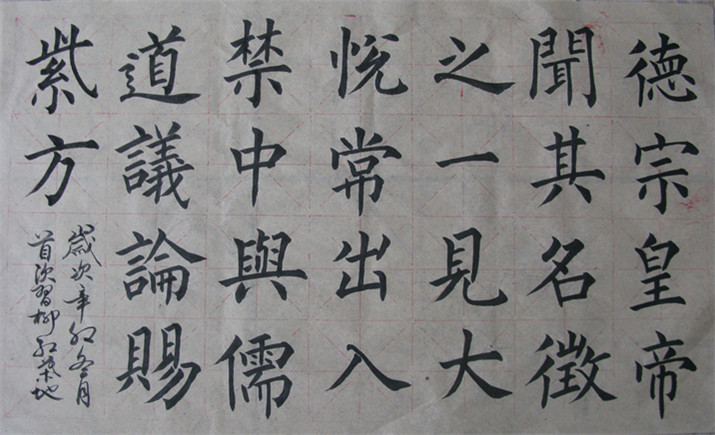 德宗皇帝
聞其名徵
之一見大
悅常出入
禁中與儒
道議論賜
紫方
歲次辛卯冬月
首次習柳紅葉地